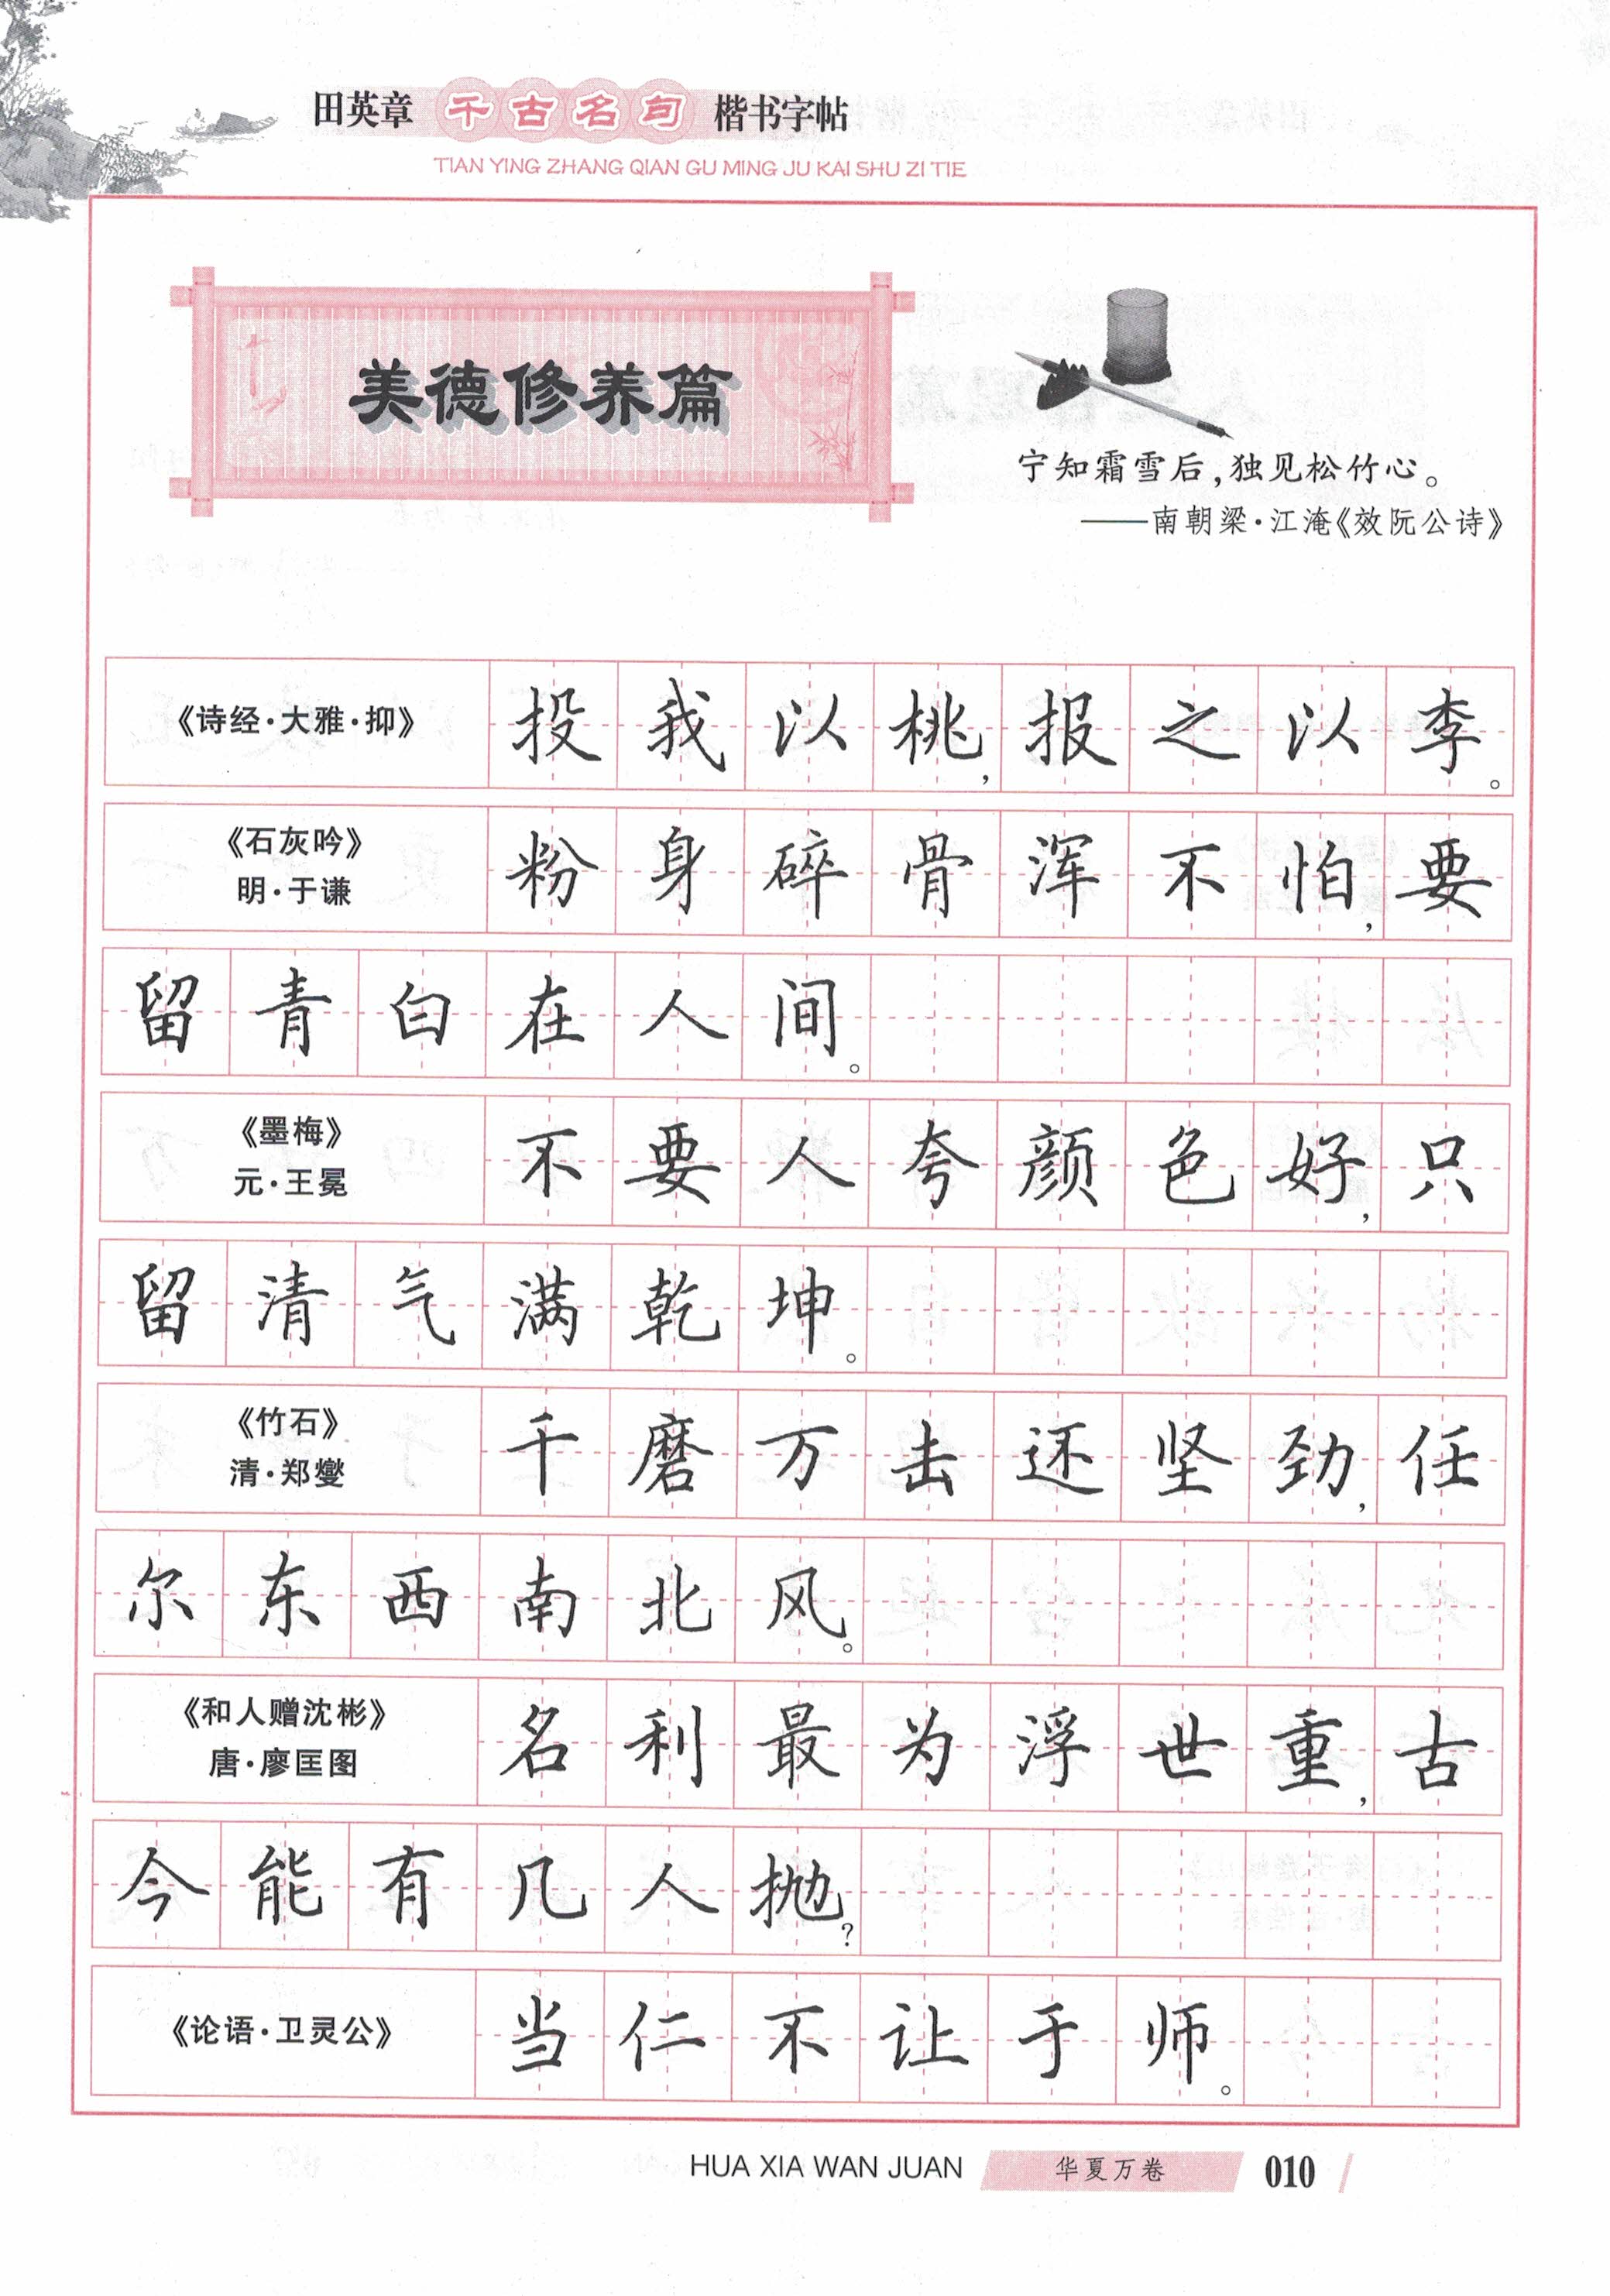 田英章 千古名句 楷书字帖
TIAN YING ZHANG QIAN GU MING JU KAI SHU ZI TIE
美德修养篇
宁知霜雪后，独见松竹心。
——南朝梁·江淹《效阮公诗》
《诗经·大雅·抑》
投我以桃，报之以李。
《石灰吟》
明·于谦
粉身碎骨浑不怕，要
留青白在人间。
《墨梅》
元·王冕
不要人夸颜色好，只
留清气满乾坤。
《竹石》
清·郑燮
千磨万击还坚劲，任
尔东西南北风。
《和人赠沈彬》
唐·廖匡图
名利最为浮世重，古
今能有几人抛？
《论语·卫灵公》
当仁不让于师。
HUA XIA WAN JUAN 华夏万卷 010